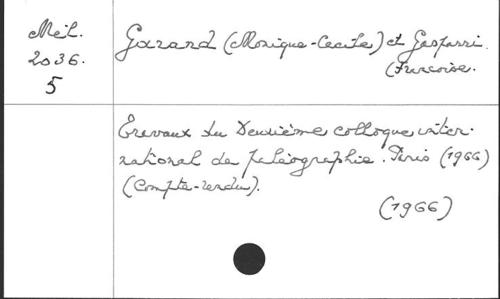 Mél.
2036.
5
Garand (Monique-Cecile) et Gasparri
(Francoise.
Travaux du Deuxième colloque inter-
national de paléographie. Paris (1966)
(Compte-rendu).
(1966)